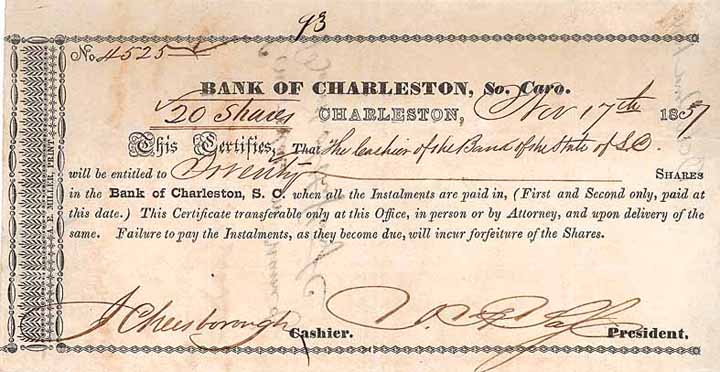 93
No. 4525
BANK OF CHARLESTON, So. Caro.
20 Shares CHARLESTON, Nov 17th 1837
This Certifies, That The Cashier of the Bank of the State of S.C.
will be entitled to Twenty SHARES
in the Bank of Charleston, S. C. when all the Instalments are paid in, (First and Second only, paid at
this date.) This Certificate transferable only at this Office, in person or by Attorney, and upon delivery of the
same. Failure to pay the Instalments, as they become due, will incur forfeiture of the Shares.
J Cheesborough Cashier. President.
A. E. MILLER, PRINT